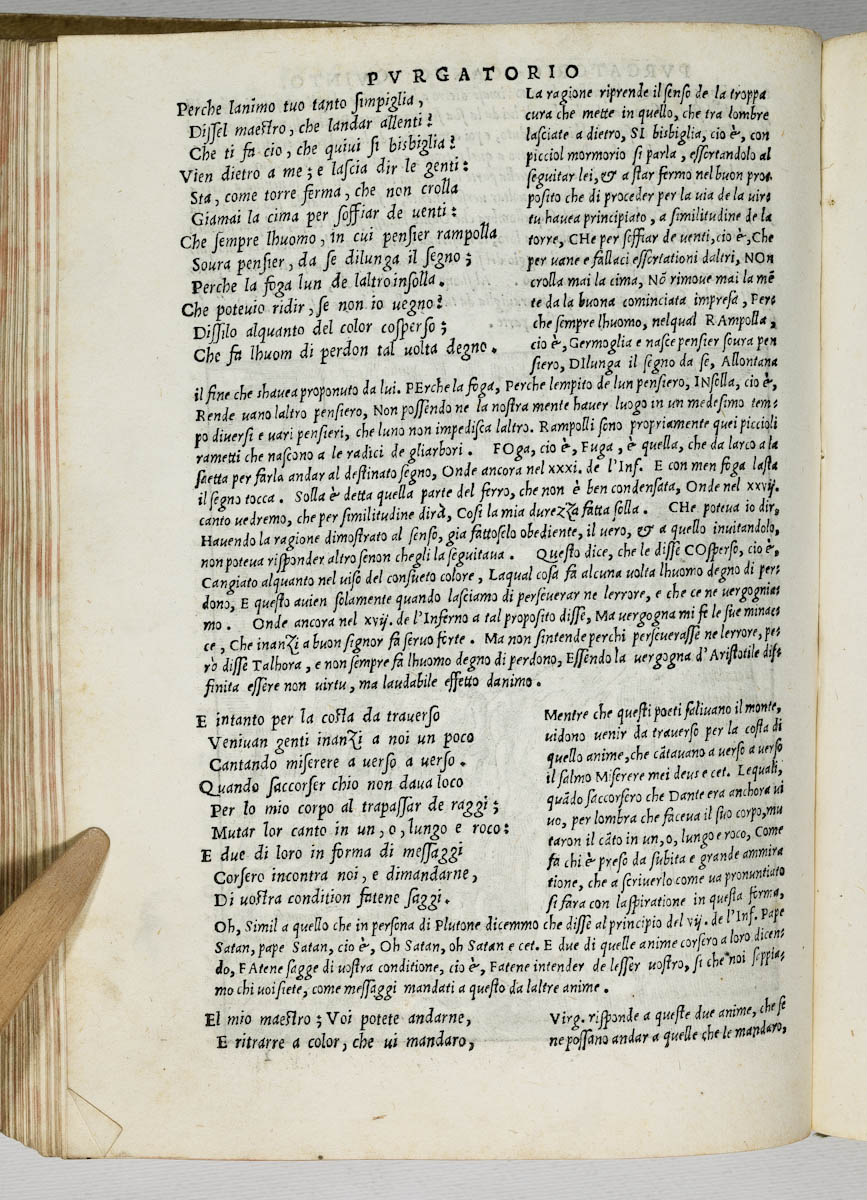 PVRGATORIO
Perche lanimo tuo tanto simpiglia,
Dissel maestro, che landar allenti?
Che ti fa cio, che quiui si bisbiglia?
Vien dietro a me; e lascia dir le genti:
Sta, come torre ferma, che non crolla
Giamai la cima per soffiar de uenti:
Che sempre lhuomo, in cui pensier rampolla
Soura pensier, da se dilunga il segno;
Perche la foga lun de laltro insolla.
Che poteuio ridir, se non io uegno?
Dissilo alquanto del color cosperso;
Che fa lhuom di perdon tal uolta degno.
La ragione riprende il senso de la troppa
cura che mette in quello, che tra lombre
lasciate a dietro, SI bisbiglia, cio è, con
picciol mormorio si parla, essortandolo al
seguitar lei, & a star fermo nel buon pro=
posito che di proceder per la uia de la uir=
tu hauea principiato, a similitudine de la
torre, CHe per soffiar de uenti, cio è, Che
per uane e fallaci essortationi daltri, NOn
crolla mai la cima, Nõ rimoue mai la mẽ
te da la buona cominciata impresa, Per=
che sempre lhuomo, nelqual RAmpolla,
cio è, Germoglia e nasce pensier soura pen
siero, DIlunga il segno da se, Allontana
il fine che shauea proponuto da lui. PErche la foga, Perche lempito de lun pensiero, INsolla, cio è,
Rende uano laltro pensiero, Non possendo ne la nostra mente hauer luogo in un medesimo tem=
po diuersi e uari pensieri, che luno non impedisca laltro. Rampolli sono propriamente quei piccioli
rametti che nascono a le radici de gliarbori. FOga, cio è, Fuga, è quella, che da larco a la
saetta per farla andar al destinato segno, Onde ancora nel xxxi. de l'Inf. E con men foga lasta
il segno tocca. Solla è detta quella parte del ferro, che non è ben condensata, Onde nel xxvij.
canto uedremo, che per similitudine dirà, Cosi la mia durezza fatta solla. CHe poteua io dir,
Hauendo la ragione dimostrato al senso, gia fattoselo obediente, il uero, & a quello inuitandolo,
non poteua risponder altro senon chegli la seguitaua. Questo dice, che le disse COsperso, cio è,
Cangiato alquanto nel uiso del consueto colore, Laqual cosa fa alcuna uolta lhuomo degno di per=
dono, E questo auien solamente quando lasciamo di perseuerar ne lerrore, e che ce ne uergognia=
mo. Onde ancora nel xvij. de l'Inferno a tal proposito disse, Ma uergogna mi fe le sue minac=
ce, Che inanzi a buon signor fa seruo forte. Ma non sintende perchi perseuerasse ne lerrore, pe=
rò disse Talhora, e non sempre fa lhuomo degno di perdono, Essendo la uergogna d'Aristotile dif=
finita essere non uirtu, ma laudabile effetto danimo.
E intanto per la costa da trauerso
Veniuan genti inanzi a noi un poco
Cantando miserere a uerso a uerso.
Quando saccorser chio non daua loco
Per lo mio corpo al trapassar de raggi;
Mutar lor canto in un, o, lungo e roco:
E due di loro in forma di messaggi
Corsero incontra noi, e dimandarne,
Di uostra condition fatene saggi.
Mentre che questi poeti saliuano il monte,
uidono uenir da trauerso per la costa di
quello anime, che cãtauano a uerso a uerso
il salmo Miserere mei deus e cet. Lequali,
quãdo saccorsero che Dante era anchora ui
uo, per lombra che faceua il suo corpo, mu
taron il cãto in un, o, lungo e roco, Come
fa chi è preso da subita e grande ammira
tione, che a scriuerlo come ua pronuntiato
si fara con laspiratione in questa forma,
Oh, Simil a quello che in persona di Plutone dicemmo che disse al principio del vij. de l'Inf. Pape
Satan, pape Satan, cio è, Oh Satan, oh Satan e cet. E due di quelle anime corsero a loro dicen=
do, FAtene sagge di uostra conditione, cio è, Fatene intender de lesser uostro, si che noi sappia=
mo chi uoi siete, come messaggi mandati a questo da laltre anime.
El mio maestro; Voi potete andarne,
E ritrarre a color, che ui mandaro,
Virg. risponde a queste due anime, che se
ne possano andar a quelle che le mandaro,